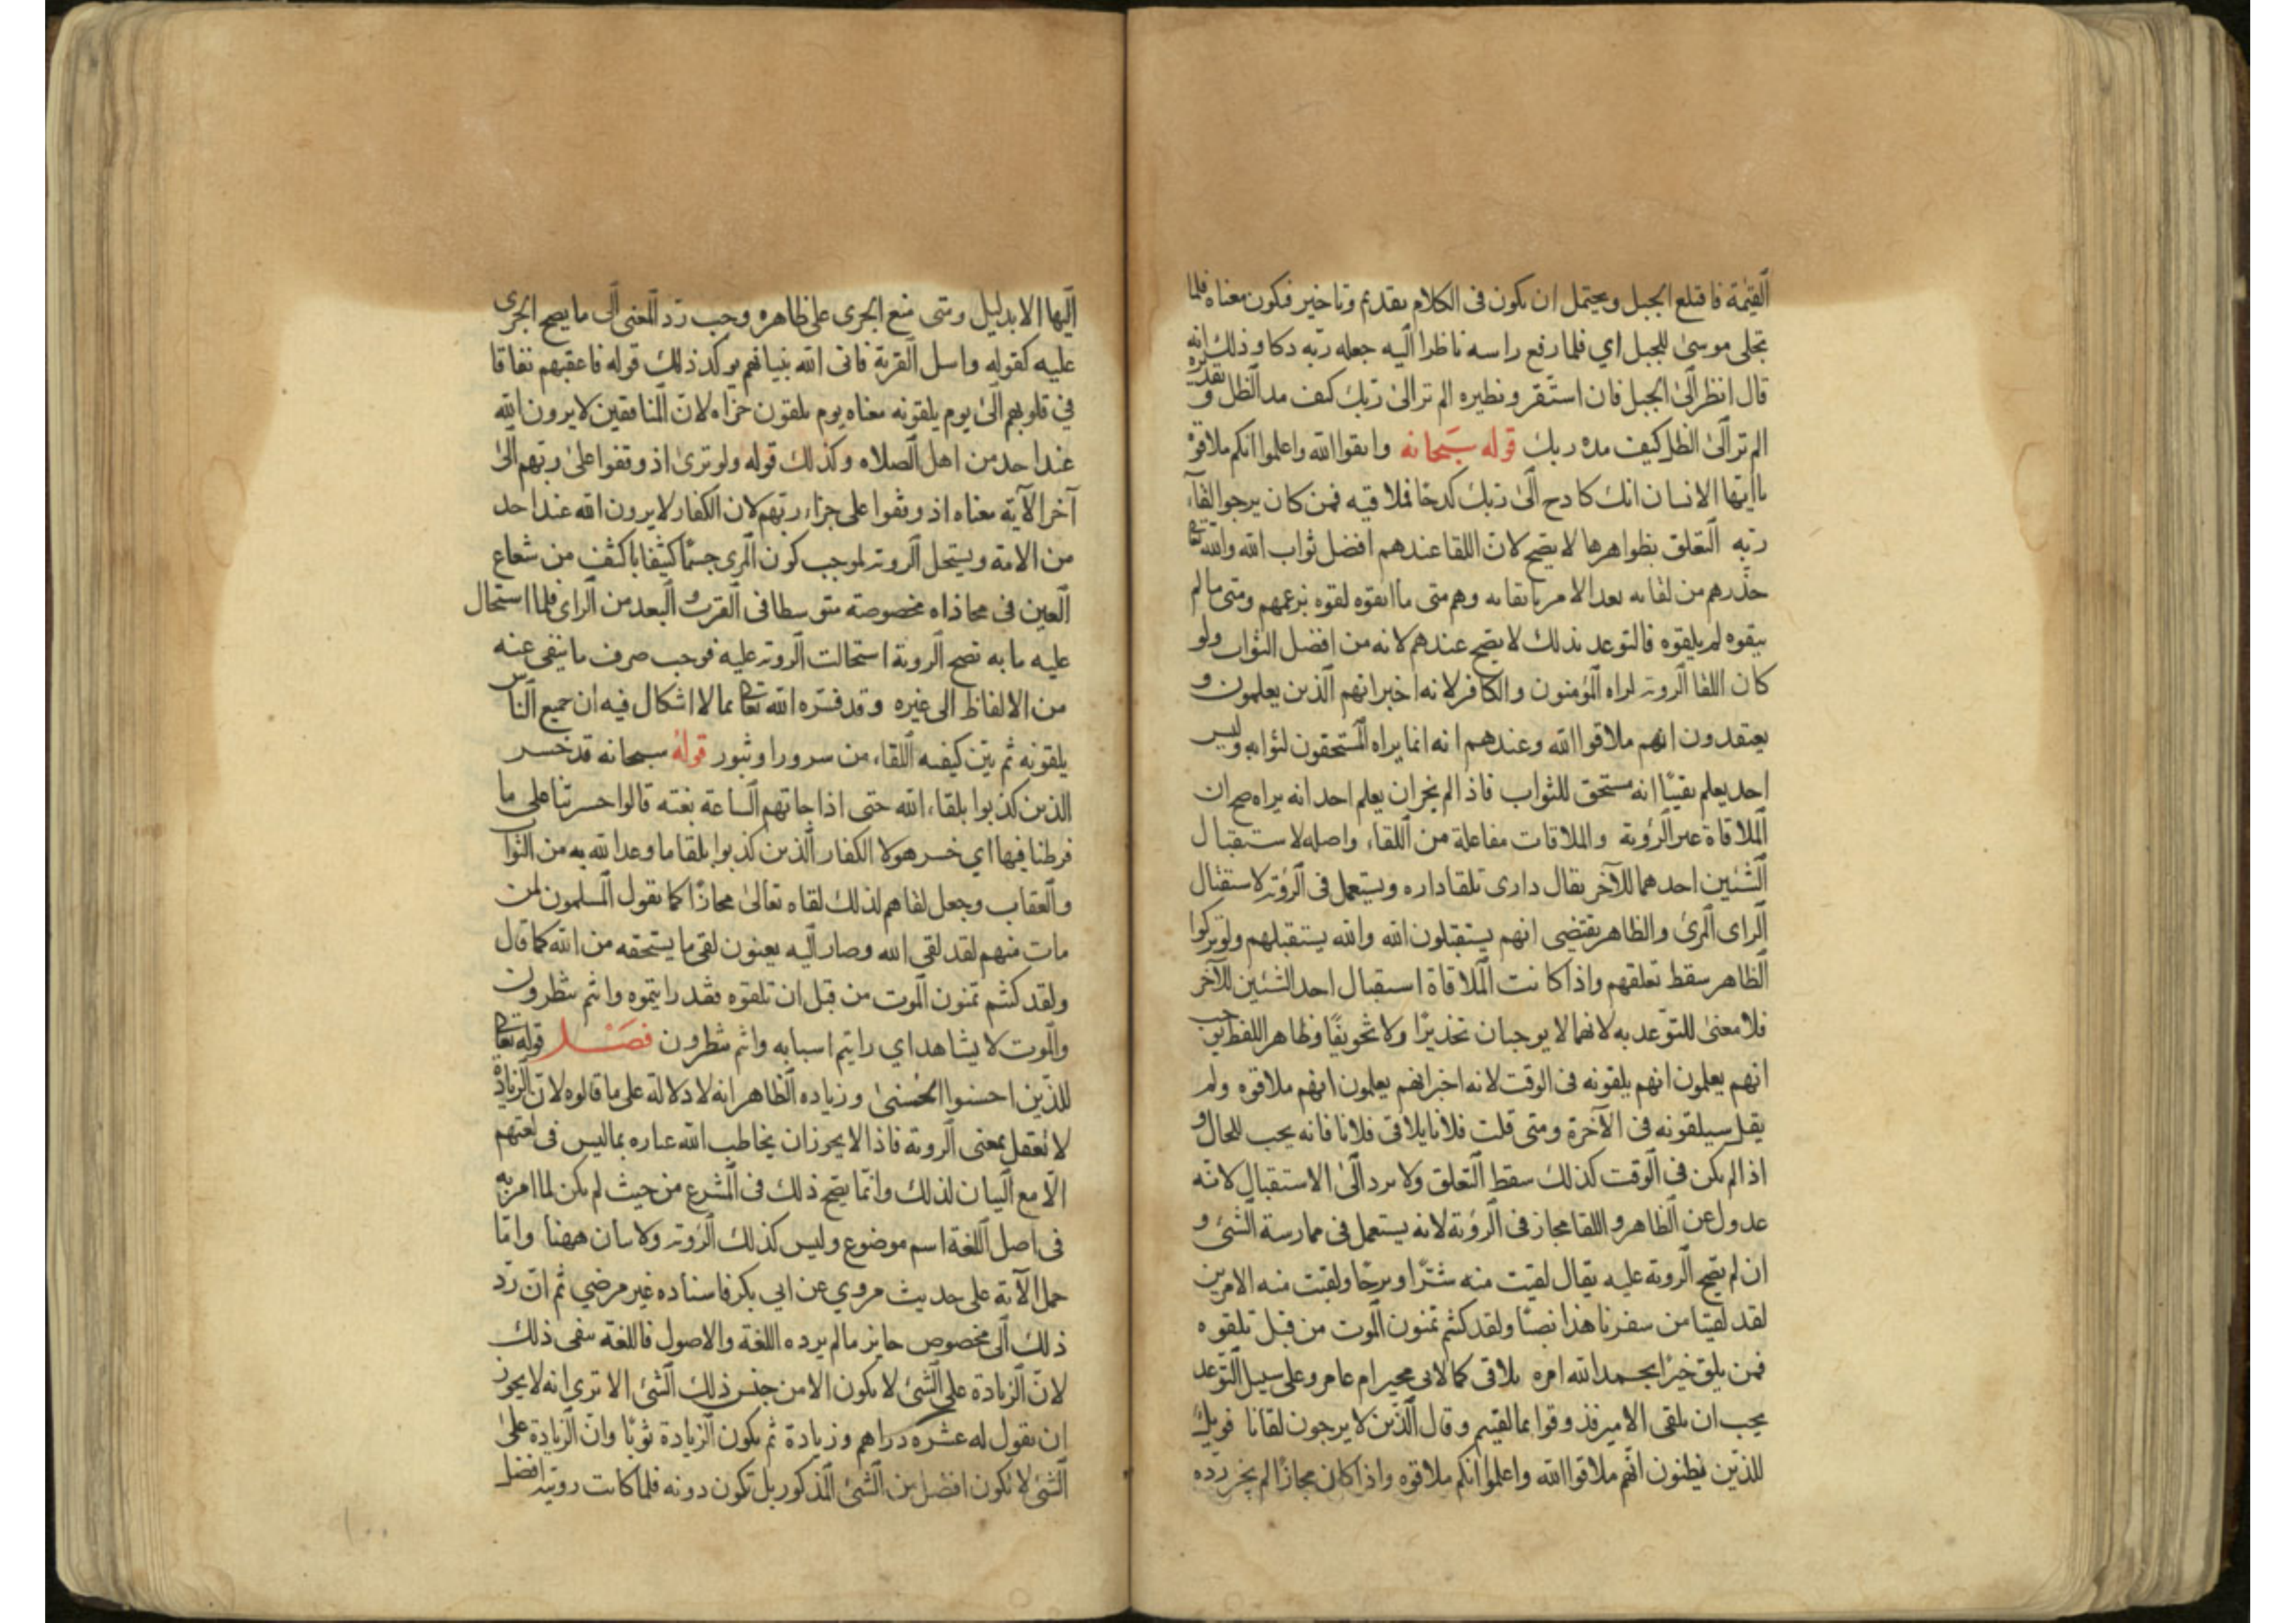 القيمة فاقتلع الجبل ويحتمل ان يكون فى الكلام تقديم وتاخير فيكون معناه فلما
تجلى موسىٰ للجبل اي فلما رفع راسه ناظرا اليه جعله ربه دكا وذلك انه
قال انظر الىٰ الجبل فان استقر ونظيره الم تر الىٰ ربك كيف مد الظل و تقديره
الم تر الىٰ الظل كيف مده ربك قوله سبحانه واتقوا الله واعلموا انكم ملاقوه
ياايها الانسان انك كادح الىٰ ربك كدحا فملاقيه فمن كان يرجوا لقاء
ربه التعلق بظواهرها لا يصح لان اللقا عندهم افضل ثواب الله والله تعا
حذرهم من لقائه بعد الامر باتقائه وهم متى ما اتقوه لقوه بزعمهم ومتى ما لم
يتقوه لم يلقوه فالتوعد بذلك لا يصح عندهم لانه من افضل الثواب ولو
كان اللقا الروية لراه المؤمنون والكافر لانه اخبر انهم الذين يعلمون و
يعتقدون انهم ملاقوا الله وعندهم انه انما يراه المستحقون لثوابه وليس
احد يعلم يقينًا انه مستحق للثواب فاذا لم يخبر ان يعلم احد انه يراه صح ان
الملاقاة غير الرؤية والملاقات مفاعلة من اللقاء واصله لاستقبال
الشئين احدهما للآخر يقال دارى تلقا داره ويستعمل فى الرؤية لاستقبال
الراى المرئ والظاهر يقتضى انهم يستقبلون الله والله يستقبلهم ولو تركوا
الظاهر سقط تعلقهم واذا كانت الملاقاة استقبال احد الشئين للآخر
فلا معنىٰ للتوعد به لانهما لا يوجبان تحذيرًا ولا تخويفًا وظاهر اللفظ يوجب
انهم يعلمون انهم يلقونه فى الوقت لانه اخبر انهم يعلمون انهم ملاقوه ولم
يقل سيلقونه فى الآخرة ومتى قلت فلانا يلاقى فلانا فانه يجب للحال و
اذا لم يكن فى الوقت كذلك سقط التعلق ولا يرد الىٰ الاستقبال لانه
عدول عن الظاهر واللقا مجاز فى الرؤية لانه يستعمل فى ممارسة الشئ و
ان لم يصح الروية عليه يقال لقيت منه شرًا وبرحا ولقيت منه الامرين
لقد لقينا من سفرنا هذا نصبًا ولقد كنتم تمنون الموت من قبل تلقوه
فمن يلق خيرًا يحمد الله امره يلاقى كما لاقى مجير ام عامر وعلى سبيل التوعد
يجب ان يلقى الامير فذوقوا بما لقيتم وقال الذين لا يرجون لقانا فويل
للذين يظنون انهم ملاقوا الله واعلموا انكم ملاقوه واذا كان مجازًا لم يخبر رده
اليها الا بدليل ومتى منع الجرى على ظاهره وجب رد المعنى الى ما يصح الجرى
عليه كقوله واسل القرية فاتى الله بنيانهم يوكد ذلك قوله فاعقبهم نفاقا
في قلوبهم الىٰ يوم يلقونه معناه يوم يلقون جزاه لان المنافقين لا يرون الله
عند احد من اهل الصلاه وكذلك قوله ولو ترىٰ اذ وقفوا علىٰ ربهم الىٰ
آخر الآية معناه اذ وقفوا على جزاء ربهم لان الكفار لا يرون الله عند احد
من الامة ويستحل الروية لموجب كون المرى جسمًا كثيفا باكثف من شعاع
العين فى محاذاه مخصوصة متوسطا فى القرب و البعد من الراى فلما استحال
عليه ما به تصح الروية استحالت الروية عليه فوجب صرف ما ينفى عنه
من الالفاظ الى غيره وقد فسره الله تعا بما لا اشكال فيه ان جميع الناس
يلقونه ثم بين كيفيه اللقاء من سرور او ثبور قوله سبحانه قد خسر
الذين كذبوا بلقاء الله حتى اذا جاتهم الساعة بغته قالوا حسرتنا على ما
فرطنا فيها اي خسر هولا الكفار الذين كذبوا بلقا ما وعد الله به من الثواب
والعقاب وجعل لقاهم لذلك لقاه تعالىٰ مجازًا كما يقول المسلمون لمن
مات منهم لقد لقى الله وصار اليه يعنون لقى ما يستحقه من الله كما قال
ولقد كنتم تمنون الموت من قبل ان تلقوه فقد رايتموه وانتم تنظرون
والموت لا يشاهد اي رايتم اسبابه وانتم تنظرون فصل قوله تعا
للذين احسنوا الحسنىٰ وزياده الظاهر انه لا دلالة على ما قالوه لان الزيادة
لا تعقل بمعنى الروية فاذا لا يجوز ان يخاطب الله عباره بما ليس فى لغتهم
الا مع البيان لذلك وانما يصح ذلك فى المشرع من حيث لم يكن لما امر به
فى اصل اللغة اسم موضوع وليس كذلك الروية ولا بيان ههنا واما
حمل الآية على حديث مروي عن ابي بكر فاسناده غير مرضي ثم ان رد
ذلك الى مخصوص جايز ما لم يرده اللغة والاصول فاللغة تنفى ذلك
لان الزيادة على الشئ لا يكون الا من جنس ذلك الشئ الا ترى انه لا يجوز
ان يقول له عشره دراهم وزيادة ثم يكون الزيادة ثوبًا وان الزيادة علىٰ
الشئ لا يكون افضل من الشئ المذكور بل تكون دونه فلما كانت رويته افضل
١٠٠